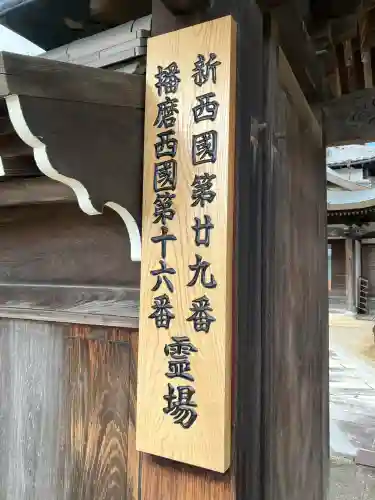 新西國第廿九番
播磨西國第十六番
霊場